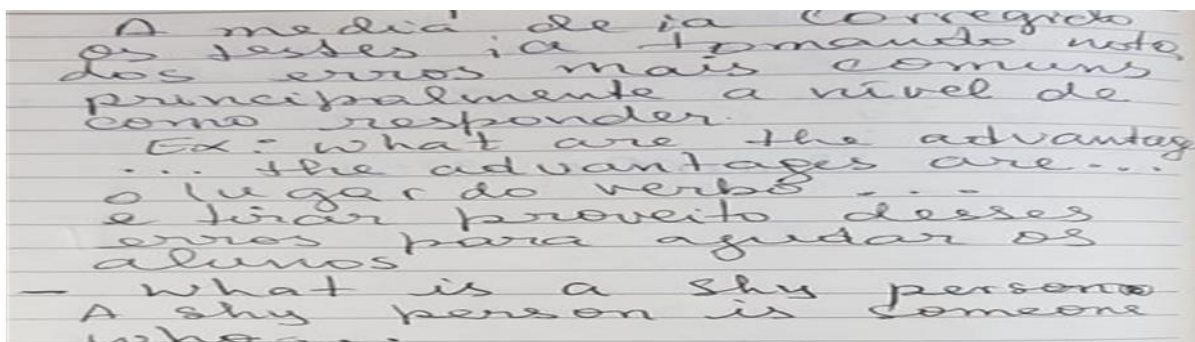 A mediá de ia corregido
os testes ia tomando nota
dos erros mais comuns
principalmente a nível de
como responder.
Ex: what are the advantag
... the advantages are...
o lugar do verbo ...
e tirar proveito desses
erros para agudar os
alunos
- what is a shy persono
A shy person is someone
who...